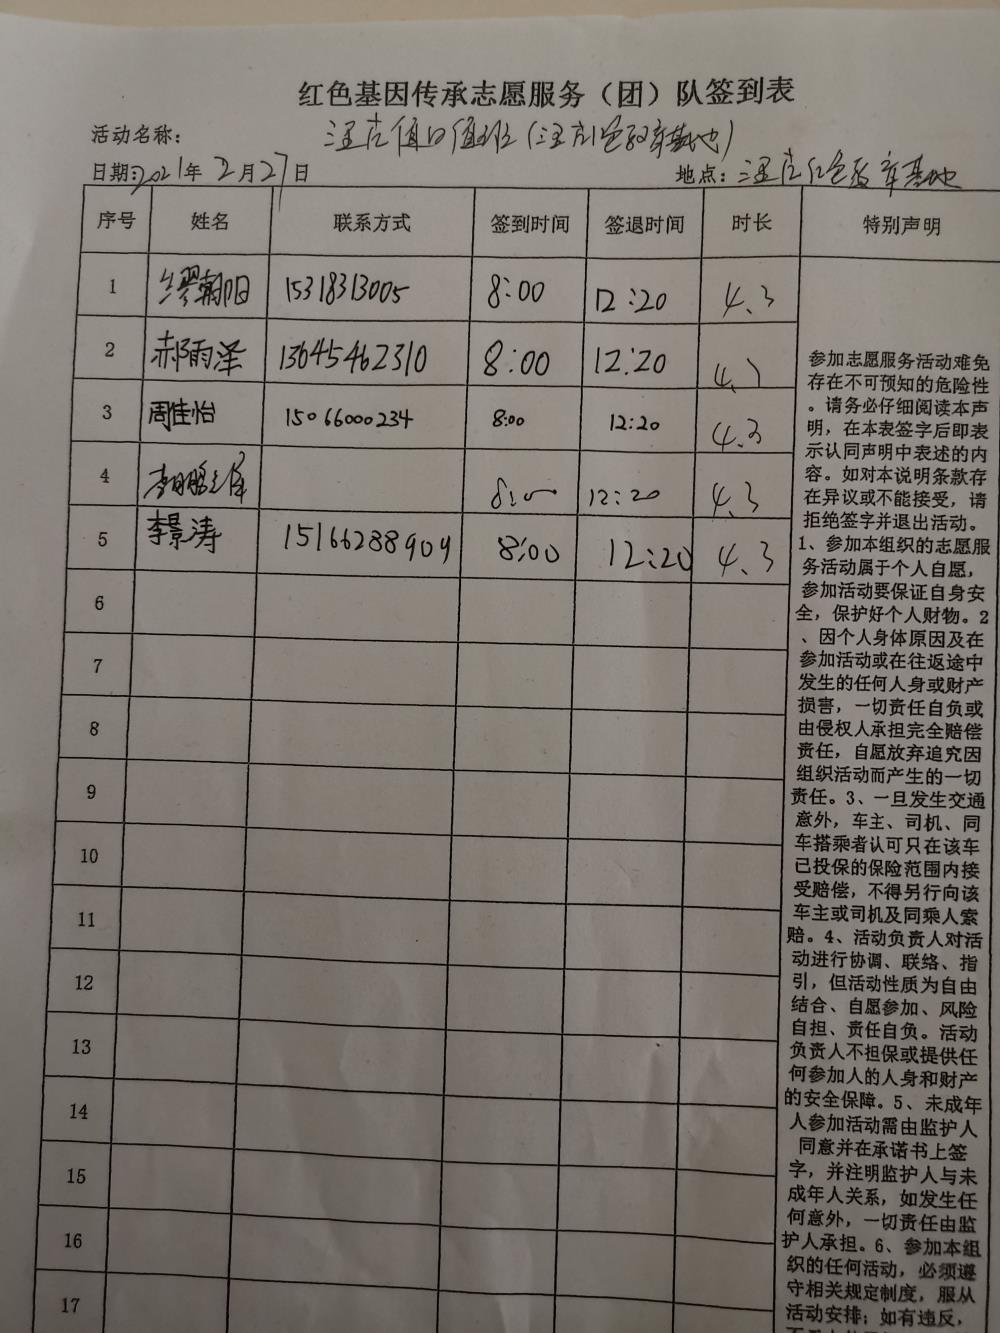 红色基因传承志愿服务（团）队签到表
活动名称：
日期：2021年2月27日 地点：
序号 姓名 联系方式 签到时间 签退时间 时长 特别声明
1 缪朝阳 15318313005 8:00 12:20 4.3
2 郝雨泽 13645462310 8:00 12:20
3 周佳怡 15066000234 8:00 12:20 4.3
4 8:00 12:20 4.3
5 李景涛 15166288909 8:00 12:20 4.3
6
7
8
9
10
11
12
13
14
15
16
17
参加志愿服务活动难免
存在不可预知的危险性
。请务必仔细阅读本声
明，在本表签字后即表
示认同声明中表述的内
容。如对本说明条款存
在异议或不能接受，请
拒绝签字并退出活动。
1、参加本组织的志愿服
务活动属于个人自愿，
参加活动要保证自身安
全，保护好个人财物。2
、因个人身体原因及在
参加活动或在往返途中
发生的任何人身或财产
损害，一切责任自负或
由侵权人承担完全赔偿
责任，自愿放弃追究因
组织活动而产生的一切
责任。3、一旦发生交通
意外，车主、司机、同
车搭乘者认可只在该车
已投保的保险范围内接
受赔偿，不得另行向该
车主或司机及同乘人索
赔。4、活动负责人对活
动进行协调、联络、指
引，但活动性质为自由
结合、自愿参加、风险
自担、责任自负。活动
负责人不担保或提供任
何参加人的人身和财产
的安全保障。5、未成年
人参加活动需由监护人
同意并在承诺书上签
字，并注明监护人与未
成年人关系，如发生任
何意外，一切责任由监
护人承担。6、参加本组
织的任何活动，必须遵
守相关规定制度，服从
活动安排；如有违反，